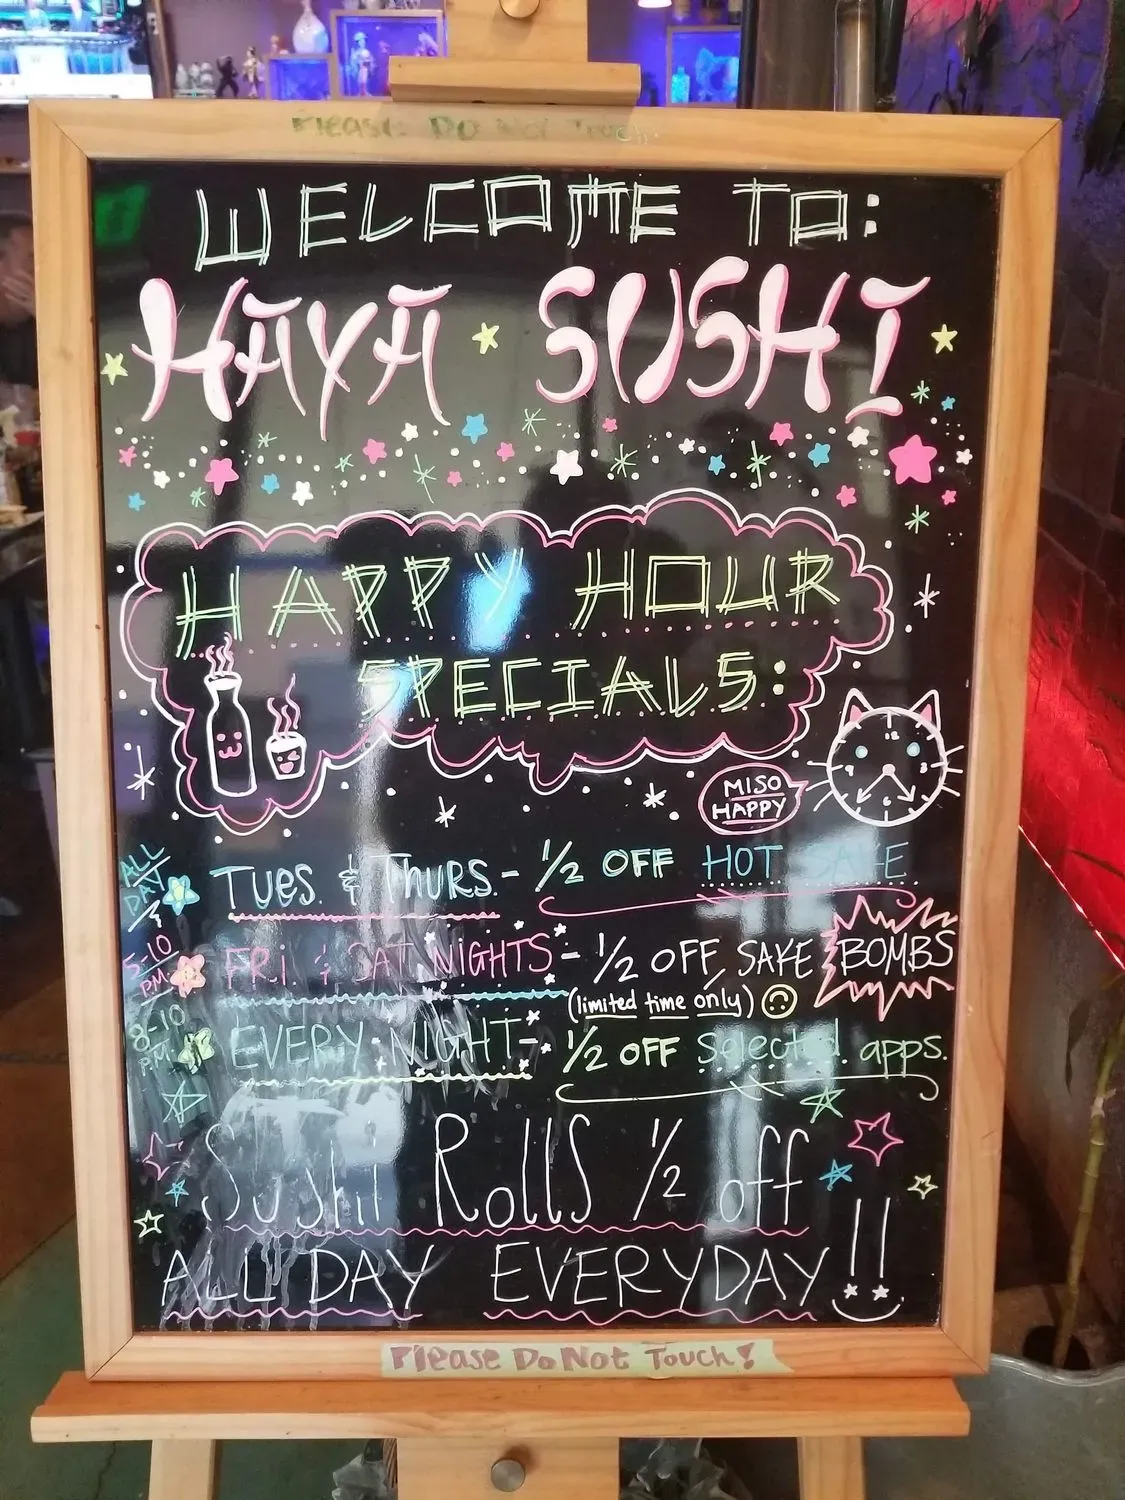 Please Do Not Touch
WELCOME TO:
HAYA SUSHI
HAPPY HOUR
SPECIALS:
12
MISO
HAPPY
ALL
DAY
TUES. & THURS. - 1/2 OFF HOT SAKE
5-10
PM
FRI. & SAT. NIGHTS - 1/2 OFF SAKE BOMBS
(limited time only)
8-10
PM
EVERY NIGHT - 1/2 OFF Selected apps.
Sushi Rolls 1/2 off
ALL DAY EVERYDAY!!
Please Do Not Touch!